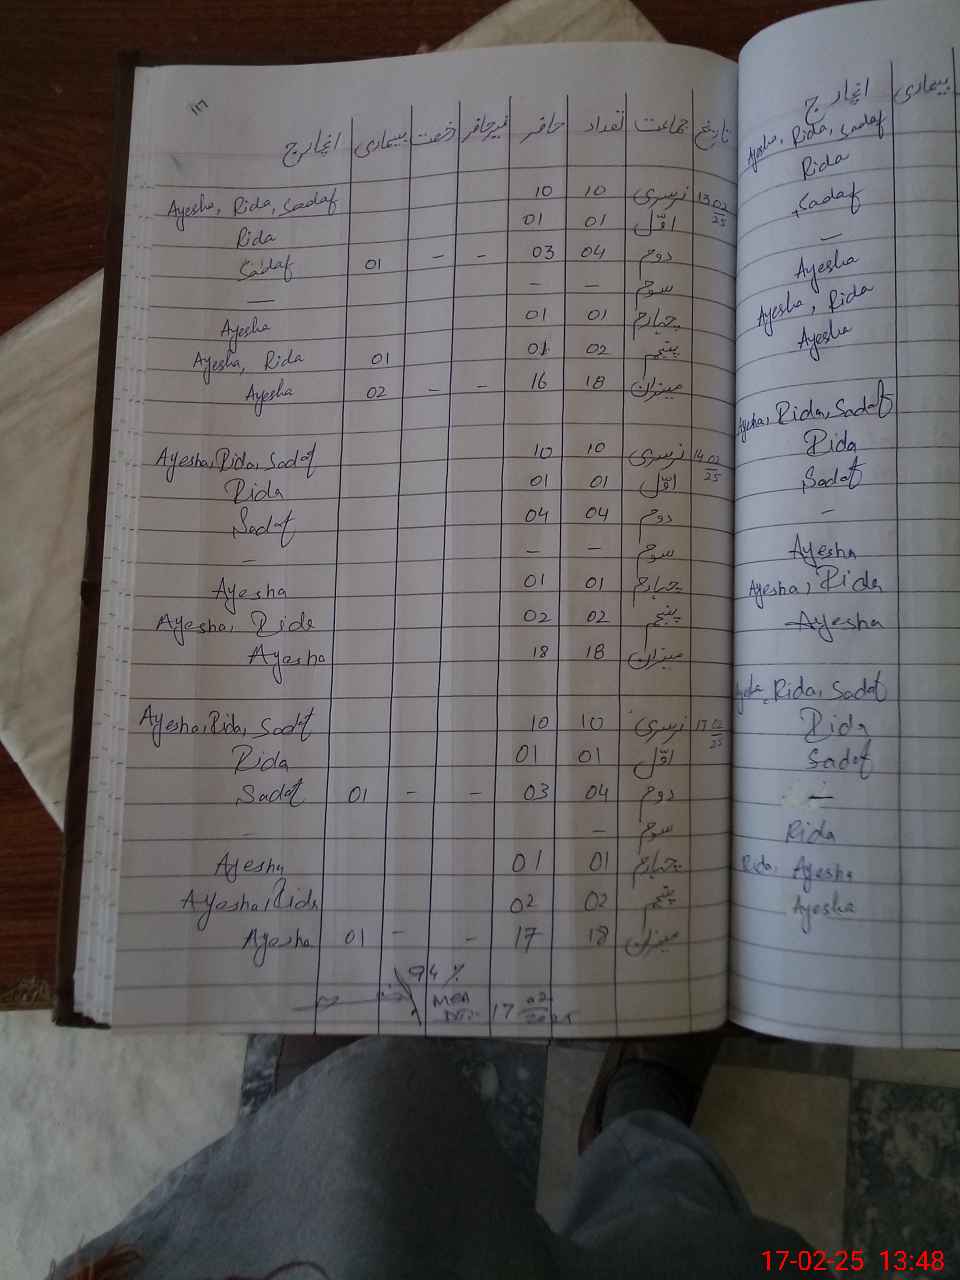 تاریخ جماعت تعداد حاضر غیرحاضر رخصت بیماری انچارج
13 02/25 نرسری 10 10 Ayesha, Rida, Sadaf
اوّل 01 01 Rida
دوم 04 03 - - 01 Sadaf
سوم - - —
چہارم 01 01 Ayesha
پنجم 02 01 01 Ayesha, Rida
میزان 18 16 - - 02 Ayesha
14 02/25 نرسری 10 10 Ayesha, Rida, Sadaf
اوّل 01 01 Rida
دوم 04 04 Sadaf
سوم - - -
چہارم 01 01 Ayesha
پنجم 02 02 Ayesha, Rida
میزان 18 18 Ayesha
17 02/25 نرسری 10 10 Ayesha, Rida, Sadaf
اوّل 01 01 Rida
دوم 04 03 - - 01 Sadaf
سوم - -
چہارم 01 01 Ayesha
پنجم 02 02 Ayesha, Rida
میزان 18 17 - - 01 Ayesha
94 %
MEA
17 02/2025
انچارج بیماری
Ayesha, Rida, Sadaf
Rida
Sadaf
—
Ayesha
Ayesha, Rida
Ayesha
Ayesha, Rida, Sadaf
Rida
Sadaf
-
Ayesha
Ayesha, Rida
Ayesha
Ayesha, Rida, Sadaf
Rida
Sadaf
—
Rida
Rida, Ayesha
Ayesha
17-02-25 13:48